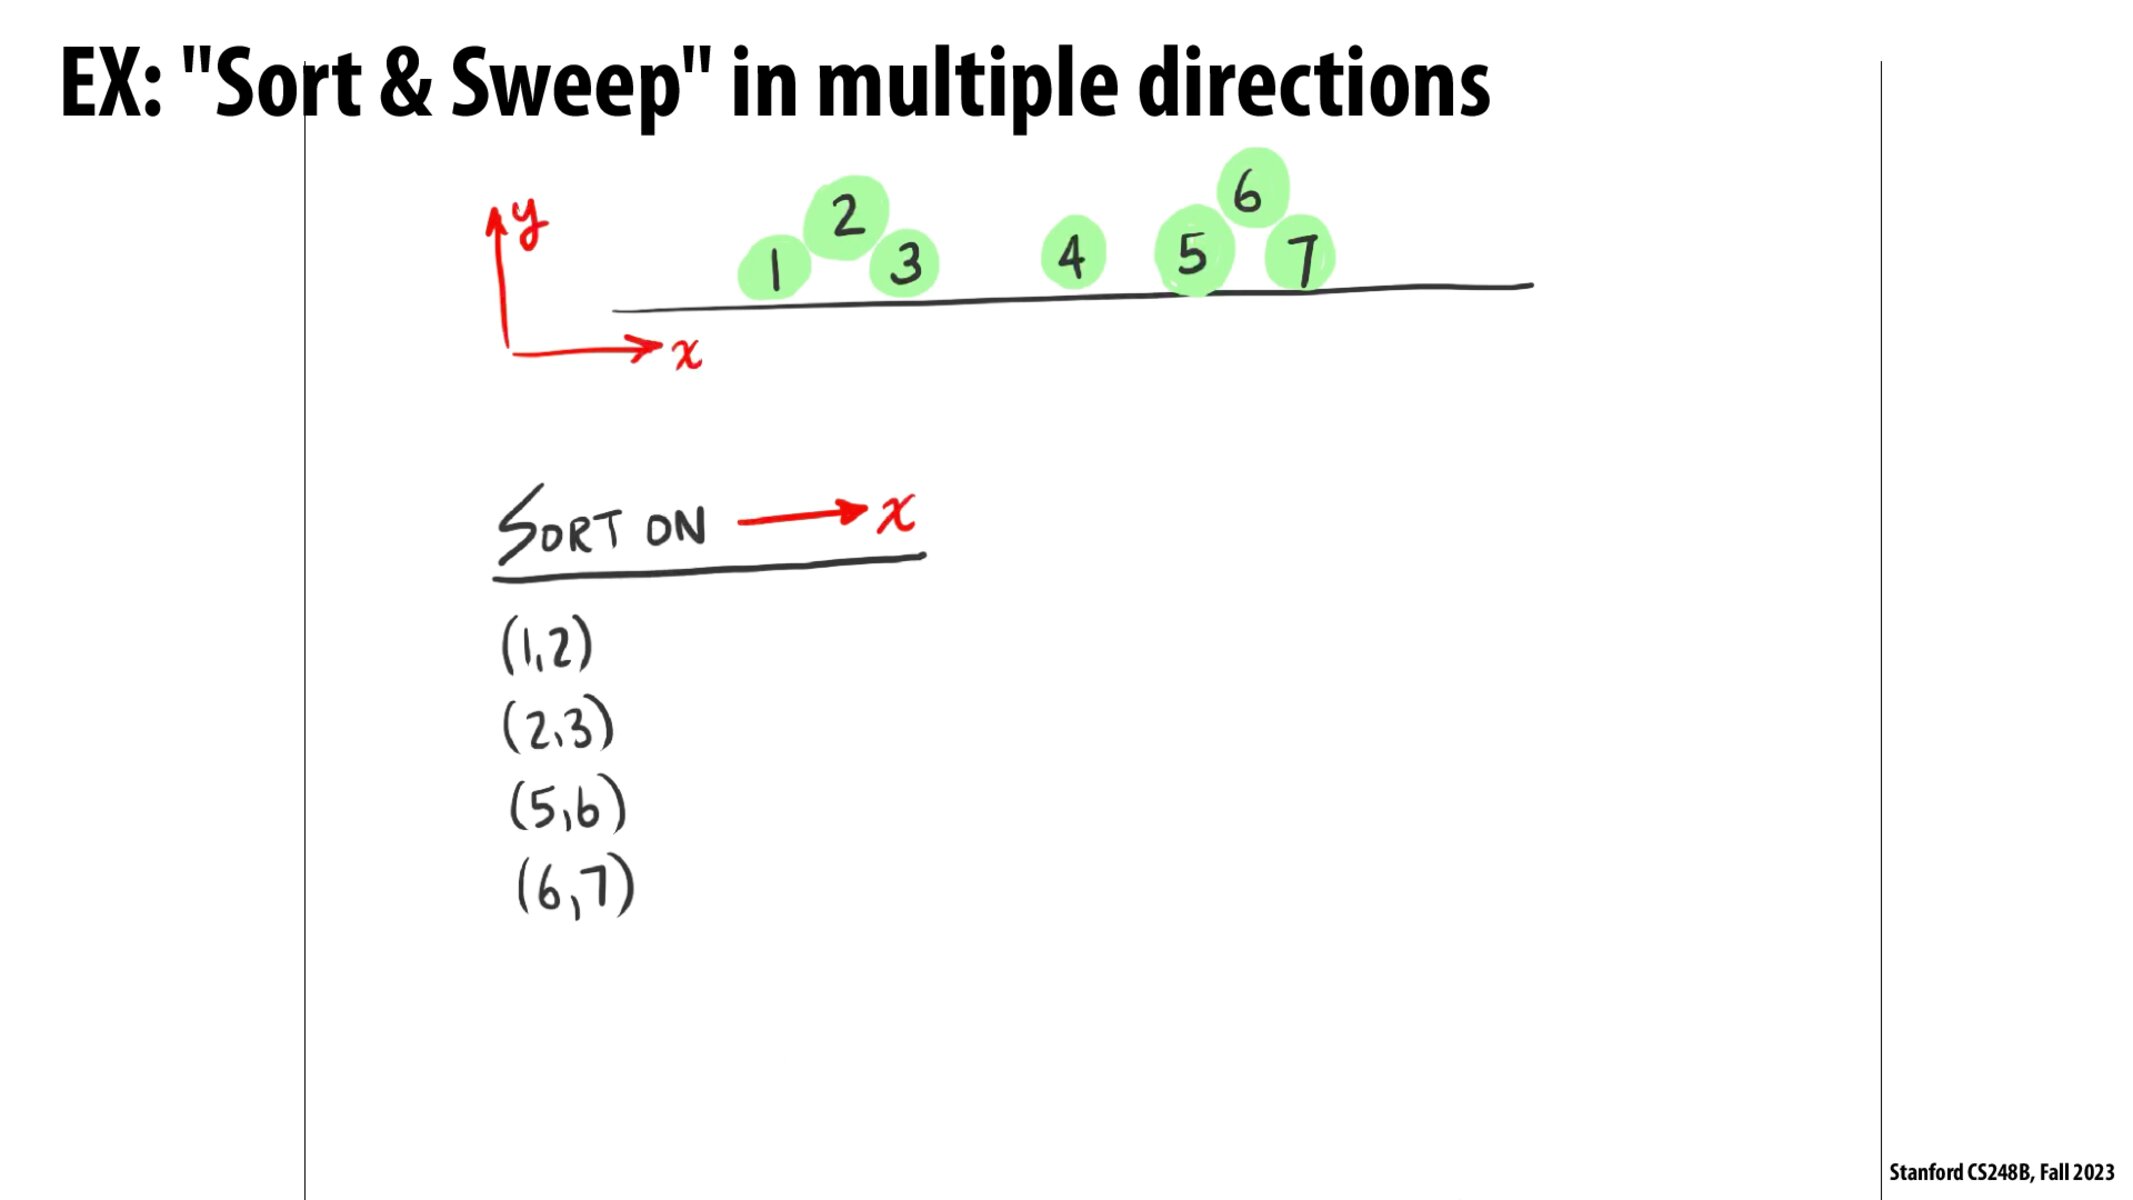 EX: "Sort & Sweep" in multiple directions
y
1 2 3 4 5 6 7
x
SORT ON → x
(1,2)
(2,3)
(5,6)
(6,7)
Stanford CS248B, Fall 2023